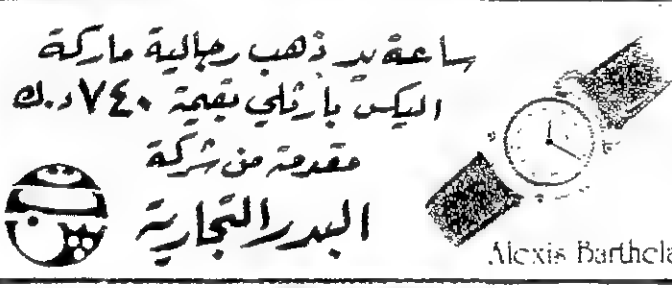 ساعة يد ذهب رجالية ماركة
اليكس بارثلي بقيمة ٧٤٠ د.ك
مقدمة من شركة
البدر التجارية
Alexis Barthela